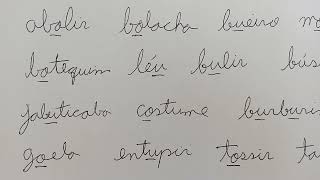 abolir bolacha bueiro
botequim léu bulir
jabuticaba costume
goela entupir tossir